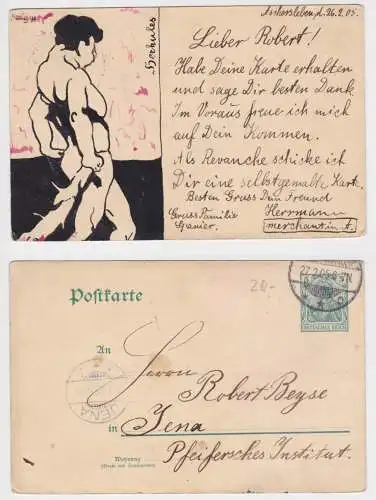 Aschersleben, d. 26.2.05.
Herkules
Lieber Robert!
Habe Deine Karte erhalten
und sage Dir besten Dank.
Im Voraus freue ich mich
auf Dein Kommen.
Als Revanche schicke ich
Dir eine selbstgemalte Karte.
Besten Gruss Dein Freund
Gruss Familie Herrmann
Spanier. merchant in A.
27.2.05.
Postkarte
DEUTSCHES REICH
20,-
An
Herrn
Robert Beyse
JENA
in Jena
Pfeifersches Institut.
Wohnung
(Straße und Hausnummer)